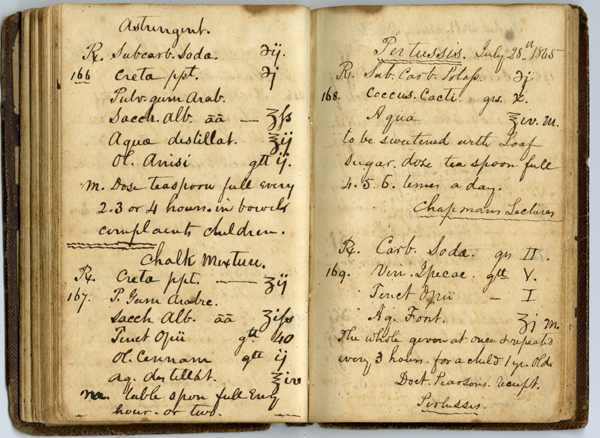 Astringent.
℞. Subcarb. Soda. ℈ij.
166 Creta ppt. ℈j
Pulv. gum Arab.
Sacch. Alb. āā — ʒſs
Aqua destillat. ℥ij
Ol. Anisi gtt ij.
M. Dose teaspoon full every
2. 3 or 4 hours. in bowels
complaints children.
Chalk Mixture.
℞. Creta ppt. — ʒij
167. P. Gum Arabic.
Sacch Alb. āā ʒiſs
Tinct Opii gtt 40
Ol. Cinnam gtt ij
aq. destillat. ℥iv
M. table spon full Evry
hour. or two.
Pertussis. July 28th 1845
℞. Sub. Carb. Potass. ℈j
168. Coccus. Cacti. grs. x.
Aqua ℥iv. M.
to be sweetened with Loaf
Sugar. dose tea spoon full
4. 5. 6. times a day.
Chapmans Lectures
℞. Carb. Soda. grs II.
169. Vin. Ipecac. gtt V.
Tinct Opii – I
Aq. Font. ʒj M.
The whole given at once & repeated
every 3 hours. for a child 1 yr. Old.
Doct. Pearsons. recept.
Pertussis.